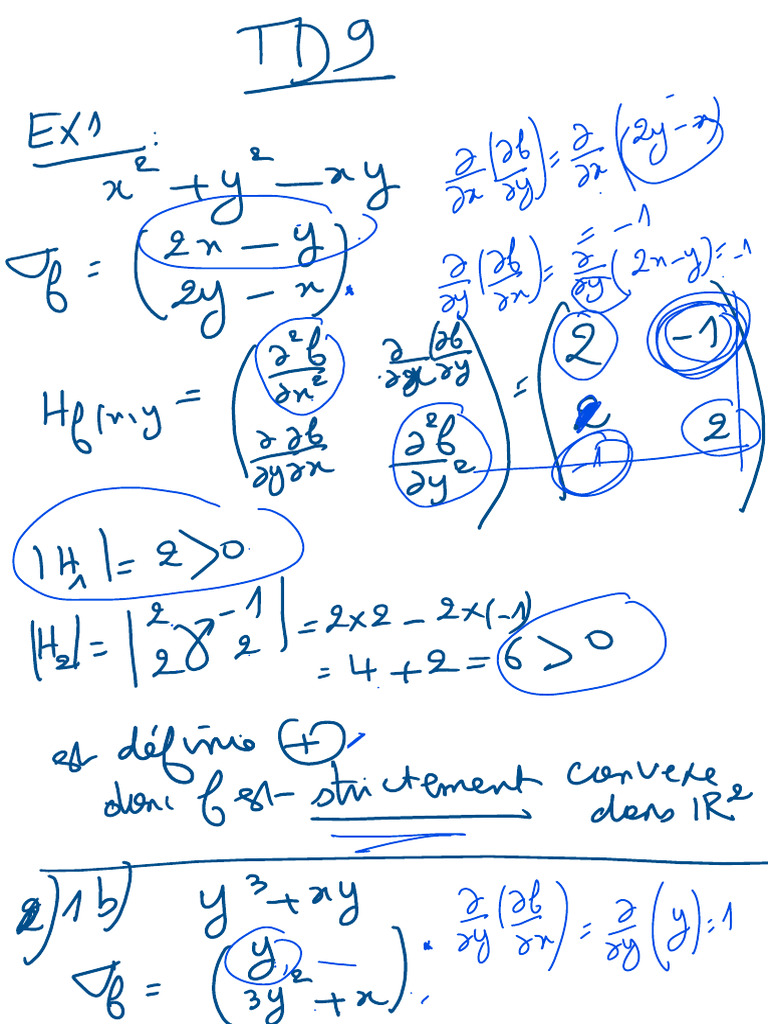 TD9
EX1 :
x² + y² - xy
∂/∂x (∂f/∂y) = ∂/∂x (2y - x)
= -1
∇f = (2x - y
2y - x)
∂/∂y (∂f/∂x) = ∂/∂y (2x - y) = -1
Hf(x,y = (∂²f/∂x² ∂/∂x (∂f/∂y)
∂ ∂f/∂y ∂x ∂²f/∂y²) = (2 -1
-1 2)
|H₁| = 2 > 0
|H₂| = |2 -1
2 2| = 2x2 - 2x(-1)
= 4 + 2 = 6 > 0
est définie (+)
donc f est strictement convexe
dans IR²
2) 1 b) y³ + xy
∂/∂y (∂f/∂x) = ∂/∂y (y) = 1
∇f = (y
3y² + x)